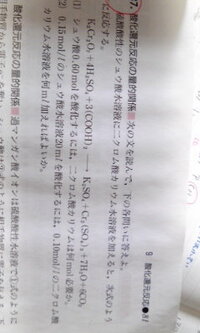 9 酸化還元反応●
57. 酸化還元反応の量的関係 次の文を読んで、下の各問いに答えよ。
硫酸酸性のシュウ酸水溶液に二クロム酸カリウム水溶液を加えると、次式のよう
に反応する。
K₂Cr₂O₇+4H₂SO₄+3(COOH)₂ → K₂SO₄+Cr₂(SO₄)₃+7H₂O+6CO₂
(1) シュウ酸0.60molを酸化するには、二クロム酸カリウムは何mol必要か。
(2) 0.15mol/lのシュウ酸水溶液20mlを酸化するには、0.10mol/lの二クロム酸
カリウム水溶液を何ml加えればよいか。
酸化還元反応の量的関係 過マンガン酸イオンは硫酸酸性水溶液で次式のように